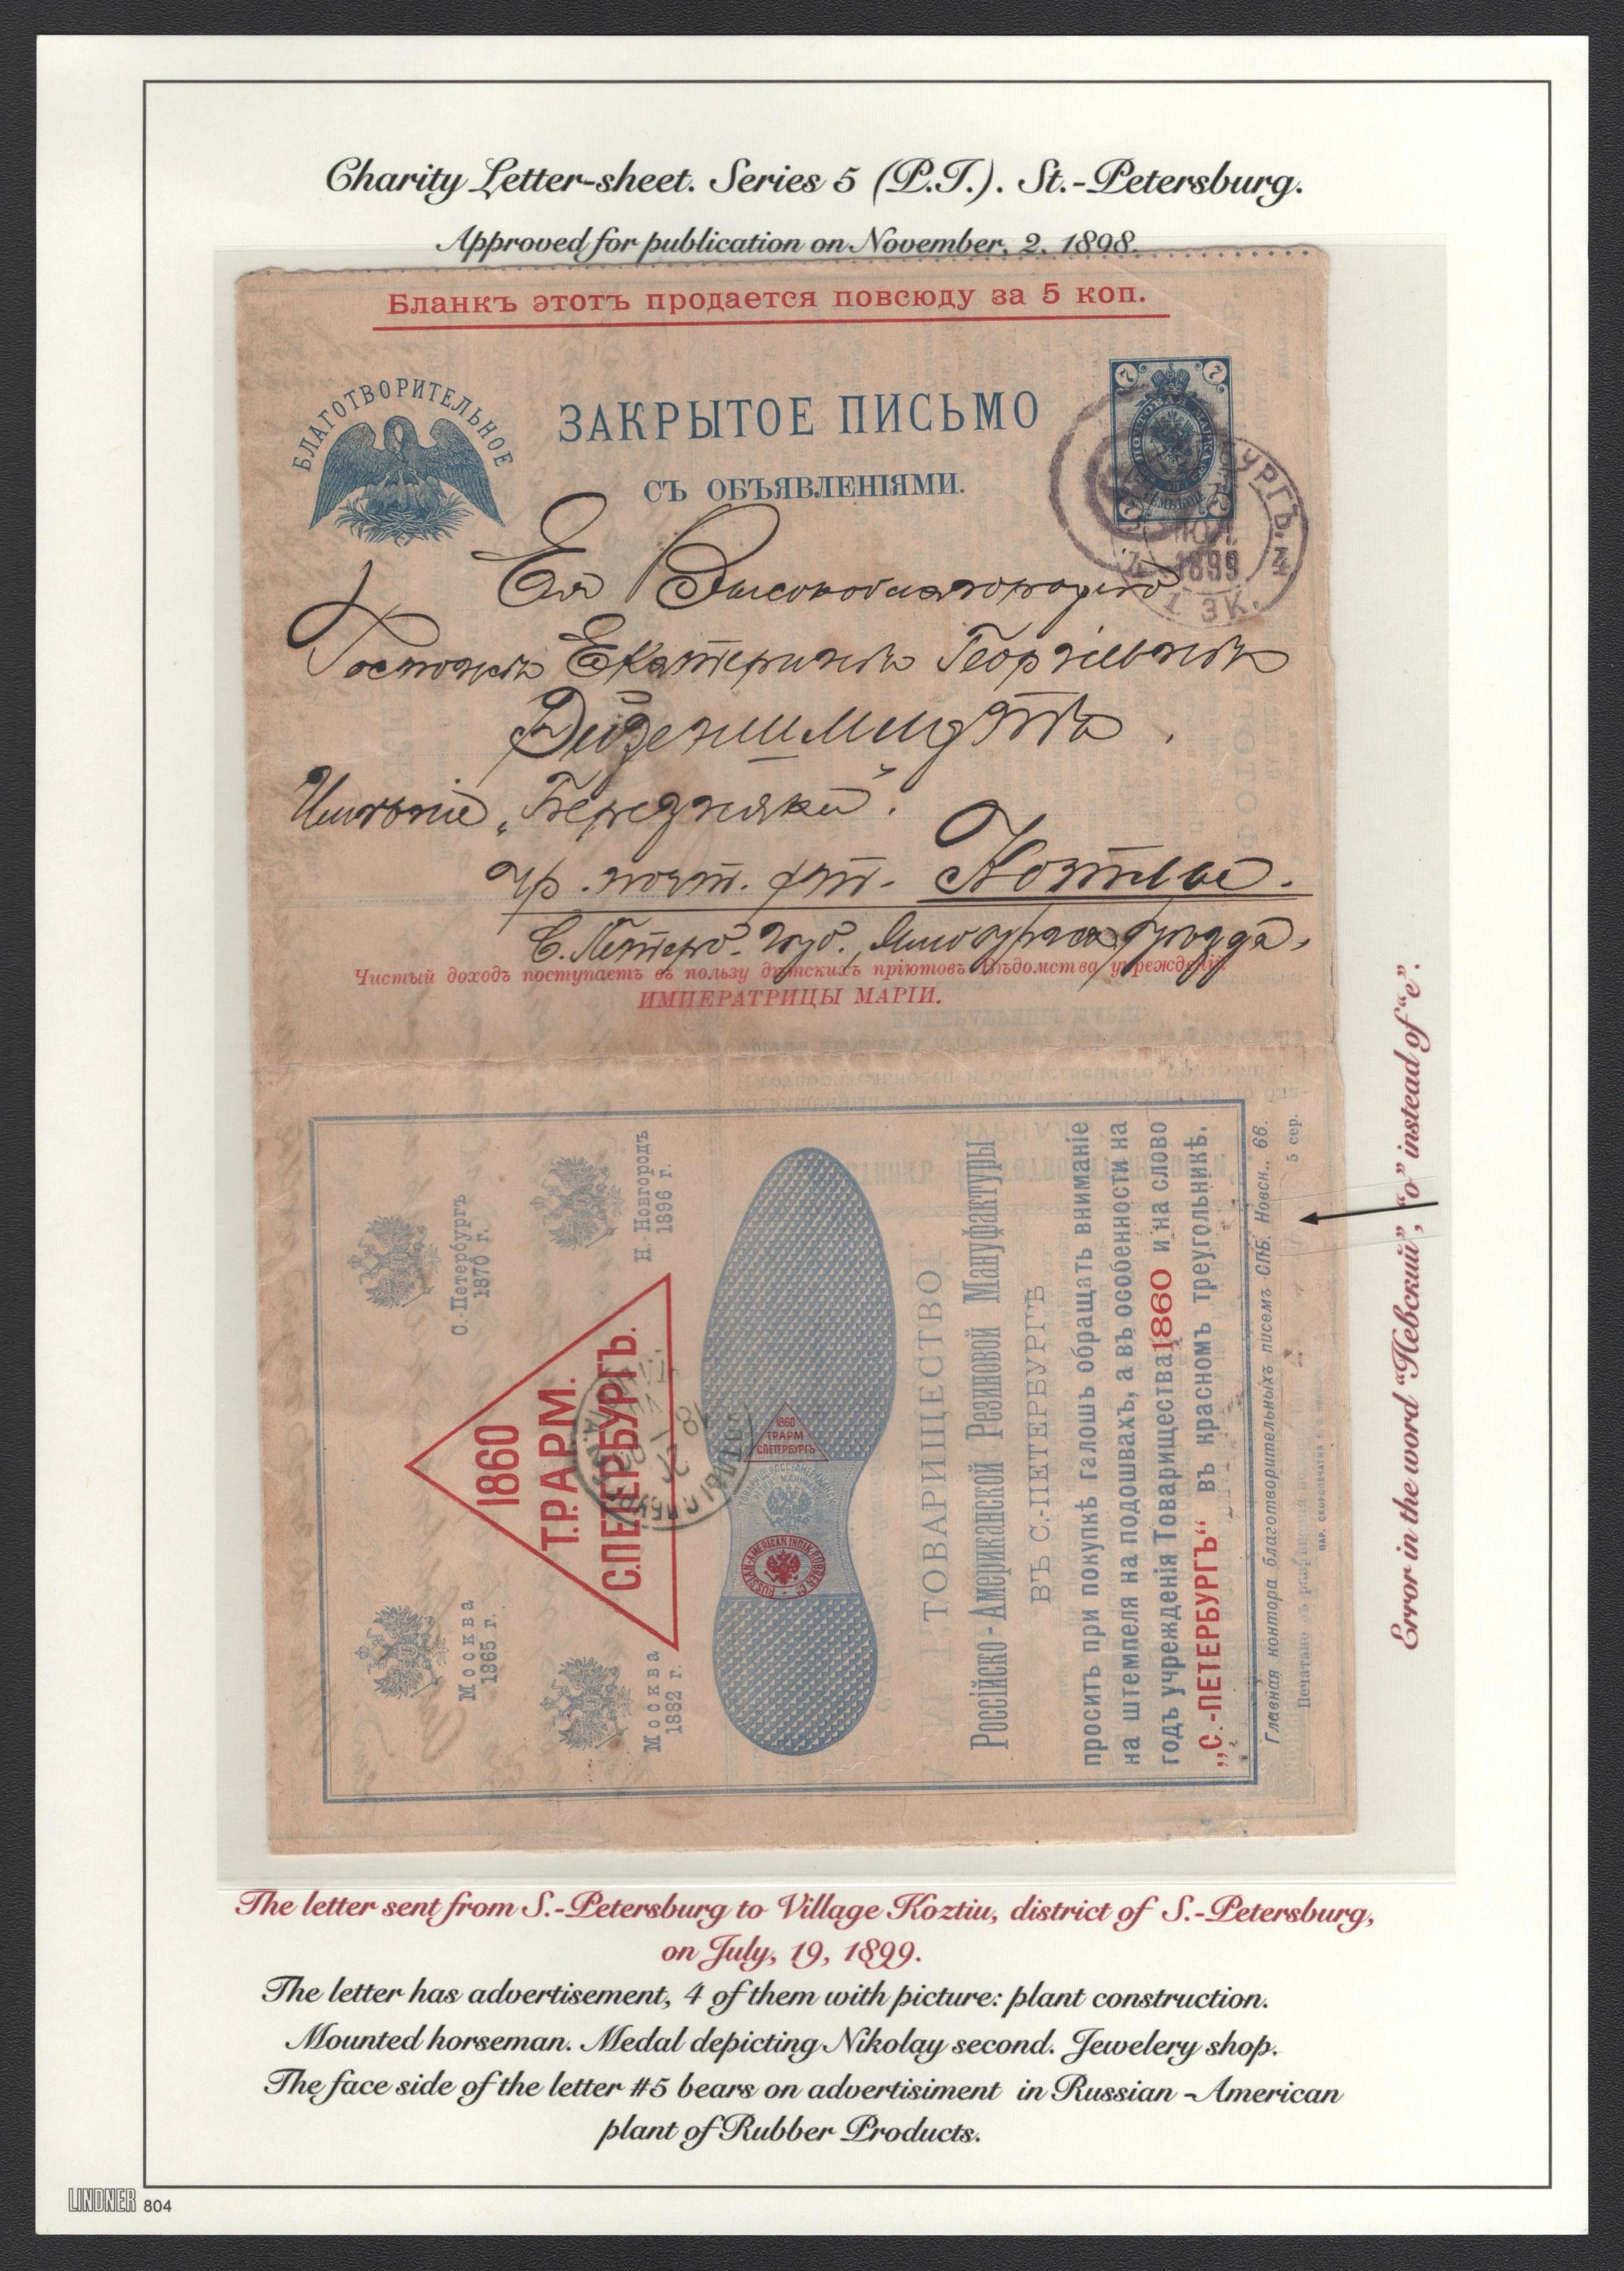 Charity Letter-sheet. Series 5 (P.T.). St.-Petersburg.
Approved for publication on November, 2, 1898.
Бланкъ этотъ продается повсюду за 5 коп.
БЛАГОТВОРИТЕЛЬНОЕ
ЗАКРЫТОЕ ПИСЬМО
СЪ ОБЪЯВЛЕНІЯМИ.
7 7
7 7
1899
1 ЭК.
Ея Высокоблагородію
Госпожѣ Екатеринѣ Георгіевнѣ
Имѣніе „Бережняки".
чр. почт. ст. Котлы.
С. Петерб. губ., Ямбургскаго уѣзда,
Чистый доходъ поступаетъ въ пользу дѣтскихъ пріютовъ Вѣдомства учрежденій
ИМПЕРАТРИЦЫ МАРІИ.
С. Петербургъ
1870 г.
Н. Новгородъ
1896 г.
Москва
1865 г.
Москва
1882 г.
1860
Т.Р.А.Р.М.
С.ПЕТЕРБУРГЪ.
1860
ТРАРМ
СПЕТЕРБУРГЪ
RUSSIAN-AMERICAN INDIA RUBBER Co
ТОВАРИЩЕСТВО
Россійско-Американской Резиновой Мануфактуры
ВЪ С.-ПЕТЕРБУРГѢ
проситъ при покупкѣ галошъ обращать вниманіе
на штемпеля на подошвахъ, а въ особенности на
годъ учрежденія Товарищества 1860 и на слово
„С.-ПЕТЕРБУРГЪ“ въ красномъ треугольникѣ.
Главная контора благотворительныхъ писемъ СПБ. Новск., 66.
5 сер.
Error in the word “Невский”, “o” instead of “e”.
The letter sent from S.-Petersburg to Village Koztiu, district of S.-Petersburg,
on July, 19, 1899.
The letter has advertisement, 4 of them with picture: plant construction.
Mounted horseman. Medal depicting Nikolay second. Jewelery shop.
The face side of the letter #5 bears on advertisiment in Russian -American
plant of Rubber Products.
LINDNER 804